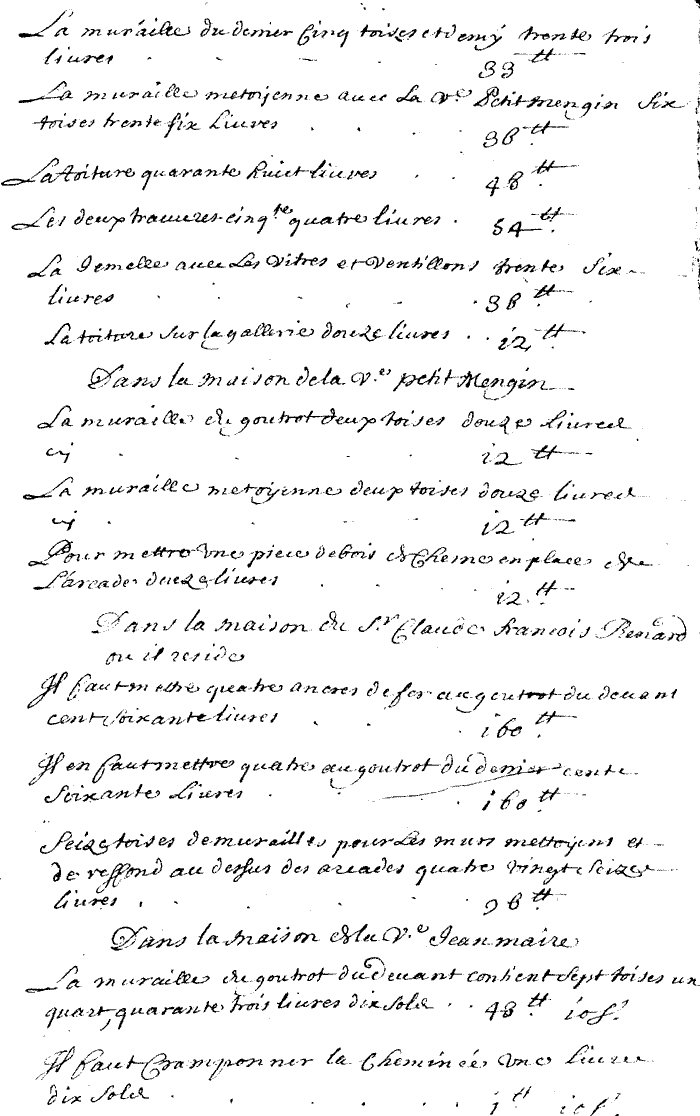 La muraille du derier Cinq toises et demÿ trente trois
livres . . . 33 tt
La muraille metoÿenne avec La Ve Petit mengin Six
toises trente six Livres . . . 36 tt
La toiture quarante huict livres . . 48 tt
Les deux travures cinqte quatre livres . 54 tt
La Jemelle avec Les vitres et ventillons trente Six
livres . . . . 36 tt
La toiture sur la gallerie douze livres . . 12 tt
Dans la maison de la Ve petit Mengin
La muraille du goutrot deux toises douze livres
cy . . . . 12 tt
La muraille metoÿenne deux toises douze livres
cy . . . . 12 tt
Pour mettre une piece de bois de Chesne en place de
L'arcade douze livres . . . 12 tt
Dans la maison du Sr Claude francois Renard
ou il reside
Il faut mettre quatre ancres de fer au goutrot du devant
cent soixante livres . . . 160 tt
Il en faut mettre quatre au goutrot du derier cente
soixante Livres . . . 160 tt
Seize toises de murailles pour Les murs mettoÿens et
de reffond au dessus des arcades quatre vingt seize
livres . . . . 96 tt
Dans la maison de la Ve Jeanmaire
La muraille du goutrot du devant contient sept toises un
quart, quarante trois livres dix sols . . 43 tt 10 s.
Il faut Cramponner la Cheminée une livre
dix sols . . . . 1 tt 10 s.